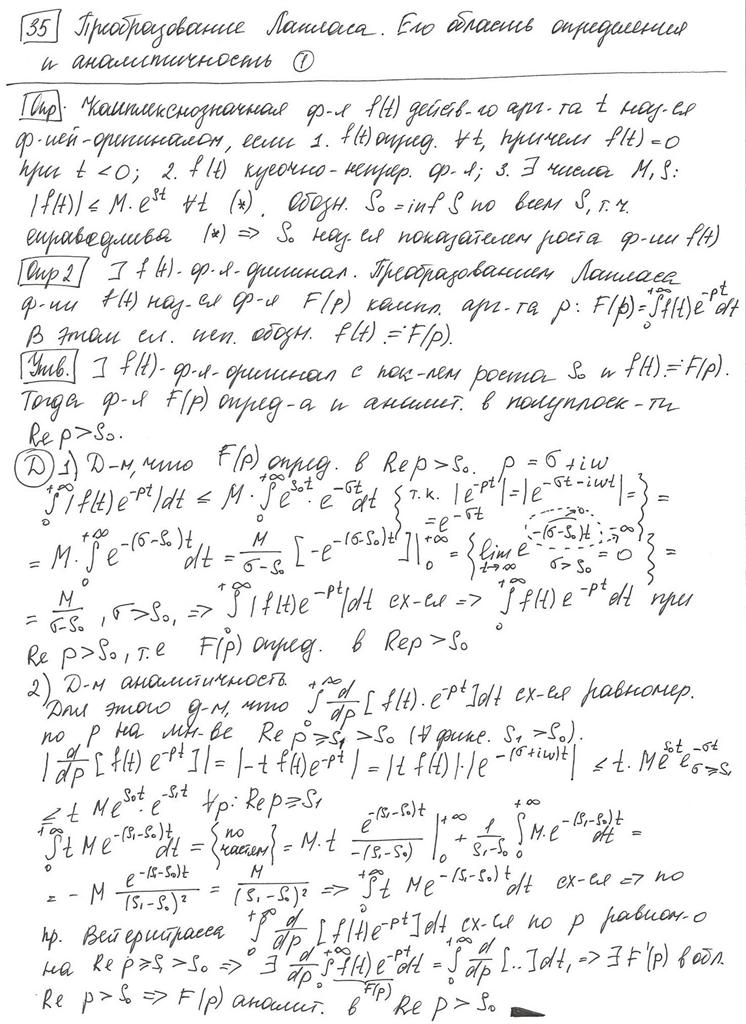 35 Преобразование Лапласа. Его область определения
и аналитичность ①
Опр. Комплекснозначная ф-я f(t) действ-го арг-та t наз-ся
ф-ией-оригиналом, если 1. f(t) опред. ∀t, причем f(t)=0
при t<0; 2. f(t) кусочно-непрер. ф-я; 3. ∃ числа M, S:
|f(t)| ≤ M·e^{St} ∀t (*). Обозн. S₀ = inf S по всем S, т.ч.
справедлива (*) => S₀ наз-ся показателем роста ф-ии f(t)
Опр 2 ] f(t)-ф-я-оригинал. Преобразованием Лапласа
ф-ии f(t) наз-ся ф-я F(p) компл. арг-та p: F(p)=∫₀^{+∞} f(t)e^{-pt}dt
В этом сл. исп. обозн. f(t) ≓ F(p).
Утв. ] f(t)-ф-я-оригинал с пок-лем роста S₀ и f(t) ≓ F(p).
Тогда ф-я F(p) опред-а и аналит. в полуплоск-ти
Re p > S₀.
Д 1) Д-м, что F(p) опред. в Re p > S₀. p = σ + iw
∫₀^{+∞} |f(t)e^{-pt}|dt ≤ M·∫₀^{+∞} e^{S₀t}·e^{-σt}dt {т.к. |e^{-pt}| = |e^{-σt-iwt}| = = e^{-σt}} =
= M·∫₀^{+∞} e^{-(σ-S₀)t}dt = M/(σ-S₀) [-e^{-(σ-S₀)t}]|₀^{+∞} = {lim_{t→∞} e^{-(σ-S₀)t} = 0 σ>S₀ >0 → -∞} =
= M/(σ-S₀), σ>S₀, => ∫₀^{+∞} |f(t)e^{-pt}|dt сх-ся => ∫₀^{+∞} f(t)e^{-pt}dt при
Re p > S₀, т.е F(p) опред. в Re p > S₀
2) Д-м аналитичность
Для этого д-м, что ∫₀^{+∞} d/dp [f(t)·e^{-pt}]dt сх-ся равномер.
по p на мн-ве Re p ≥ S₁ > S₀ (∀ фикс. S₁ > S₀).
|d/dp [f(t)e^{-pt}]| = |-t f(t)e^{-pt}| = |t f(t)|·|e^{-(σ+iw)t}| ≤ t·Me^{S₀t}e^{-σt} σ≥S₁
≤ t Me^{S₀t}·e^{-S₁t} ∀p: Re p ≥ S₁
∫₀^{+∞} t Me^{-(S₁-S₀)t}dt = {по частям} = M·t e^{-(S₁-S₀)t}/(-(S₁-S₀)) |₀^{+∞} + 1/(S₁-S₀) ∫₀^{+∞} M·e^{-(S₁-S₀)t}dt =
= - M e^{-(S₁-S₀)t}/(S₁-S₀)² = M/(S₁-S₀)² => ∫₀^{+∞} t Me^{-(S₁-S₀)t}dt сх-ся => по
пр. Вейерштрасса ∫₀^{+∞} d/dp [f(t)e^{-pt}]dt сх-ся по p равном-о
на Re p ≥ S₁ > S₀ => ∃ d/dp ∫₀^{+∞} f(t)e^{-pt}dt = ∫₀^{+∞} d/dp [..]dt, => ∃ F'(p) в обл.
F(p)
Re p > S₀ => F(p) аналит. в Re p > S₀